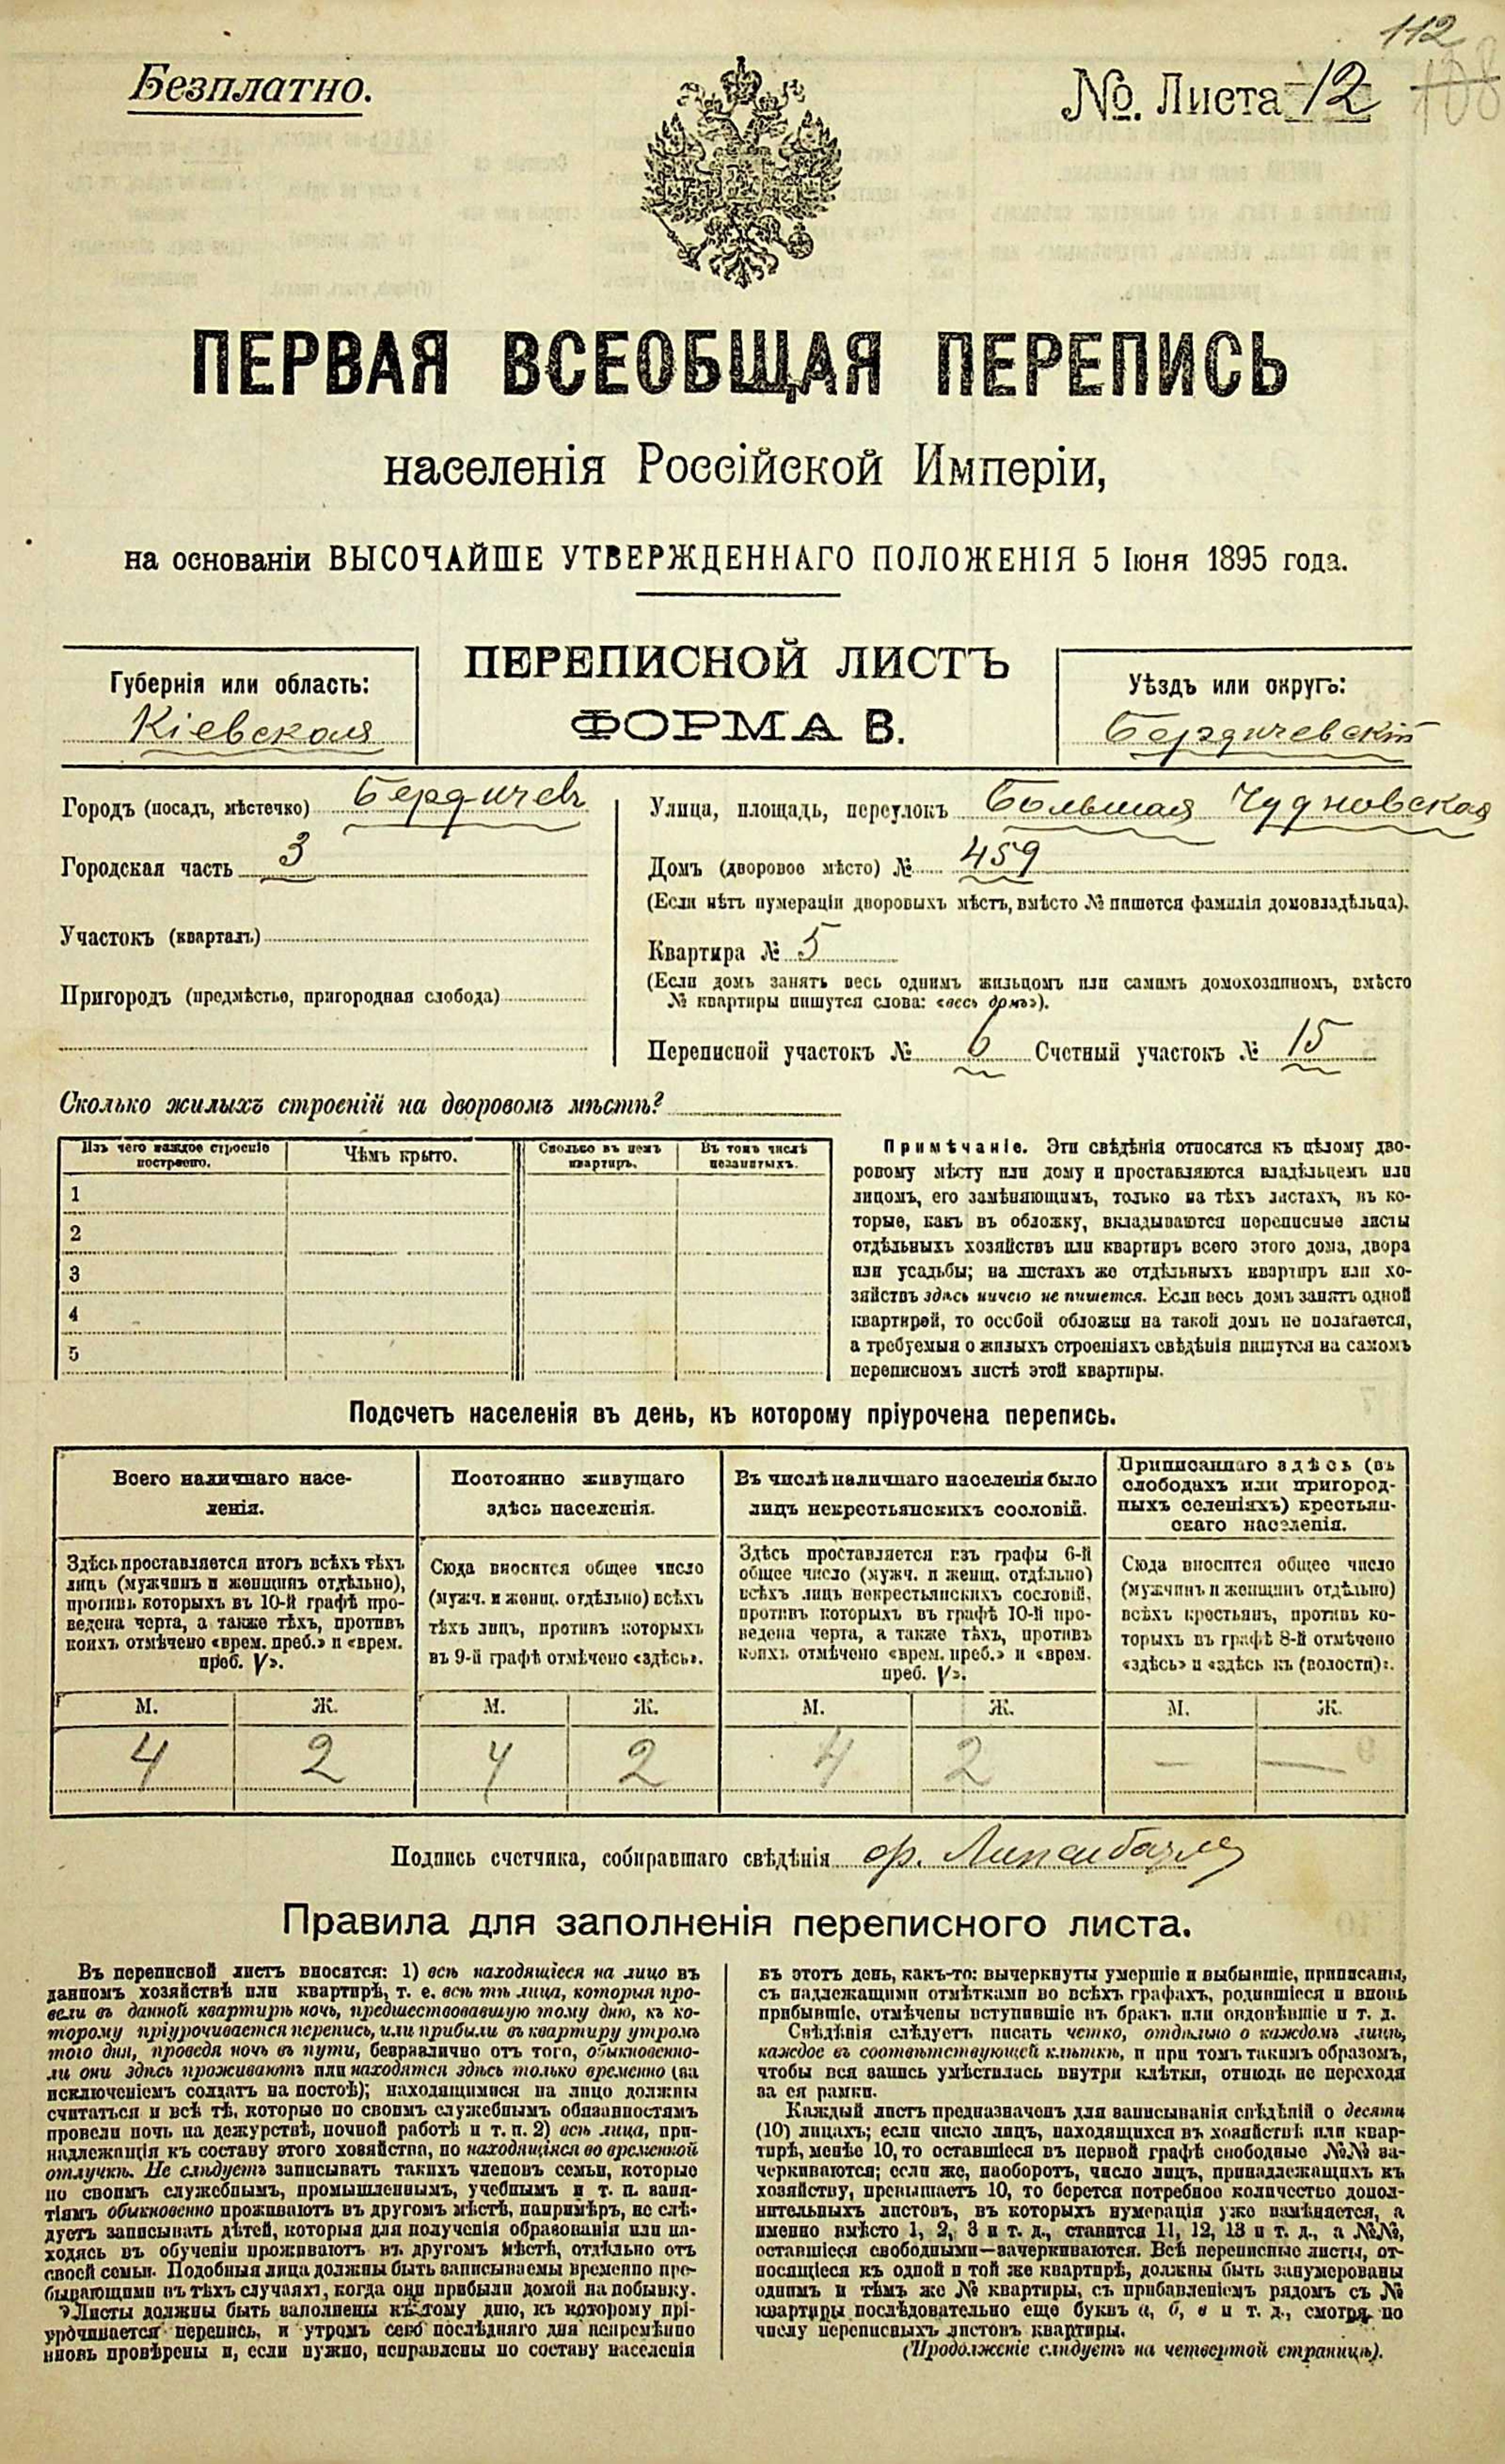 112
Безплатно.
№. Листа 12 108
ПЕРВАЯ ВСЕОБЩАЯ ПЕРЕПИСЬ
населенія Россійской Имперіи,
на основаніи ВЫСОЧАЙШЕ УТВЕРЖДЕННАГО ПОЛОЖЕНІЯ 5 Іюня 1895 года.
ПЕРЕПИСНОЙ ЛИСТЪ
ФОРМА В.
Губернія или область:
Кіевская
Уѣздъ или округъ:
Бердичевскій
Городъ (посадъ, мѣстечко) Бердичевъ
Городская часть 3
Участокъ (кварталъ)
Пригородъ (предмѣстье, пригородная слобода)
Улица, площадь, переулокъ Большая Чудновская
Домъ (дворовое мѣсто) № 459
(Если нѣтъ нумераціи дворовыхъ мѣстъ, вмѣсто № пишется фамилія домовладѣльца).
Квартира № 5
(Если домъ занятъ весь однимъ жильцомъ или самимъ домохозяиномъ, вмѣсто
№ квартиры пишутся слова: «весь домъ»).
Переписной участокъ № 6 Счетный участокъ № 15
Сколько жилыхъ строеній на дворовомъ мѣстѣ?
Изъ чего каждое строеніе
построено.
Чѣмъ крыто.
Сколько въ немъ
квартиръ.
Въ томъ числѣ
незанятыхъ.
1
2
3
4
5
Примѣчаніе. Эти свѣдѣнія относятся къ цѣлому дво-
ровому мѣсту или дому и проставляются владѣльцемъ или
лицомъ, его замѣняющимъ, только на тѣхъ листахъ, въ ко-
торые, какъ въ обложку, вкладываются переписные листы
отдѣльныхъ хозяйствъ или квартиръ всего этого дома, двора
или усадьбы; на листахъ же отдѣльныхъ квартиръ или хо-
зяйствъ здѣсь ничего не пишется. Если весь домъ занятъ одной
квартирой, то особой обложки на такой домъ не полагается,
а требуемыя о жилыхъ строеніяхъ свѣдѣнія пишутся на самомъ
переписномъ листѣ этой квартиры.
Подсчетъ населенія въ день, къ которому пріурочена перепись.
Всего наличнаго насе-
ленія.
Постоянно живущаго
здѣсь населенія.
Въ числѣ наличнаго населенія было
лицъ некрестьянскихъ сословій.
Приписаннаго здѣсь (въ
слободахъ или пригород-
ныхъ селеніяхъ) крестьян-
скаго населенія.
Здѣсь проставляется итогъ всѣхъ тѣхъ
лицъ (мужчинъ и женщинъ отдѣльно),
противъ которыхъ въ 10-й графѣ про-
ведена черта, а также тѣхъ, противъ
коихъ отмѣчено «врем. преб.» и «врем.
преб. V».
Сюда вносится общее число
(мужч. и женщ. отдѣльно) всѣхъ
тѣхъ лицъ, противъ которыхъ
въ 9-й графѣ отмѣчено «здѣсь».
Здѣсь проставляется изъ графы 6-й
общее число (мужч. и женщ. отдѣльно)
всѣхъ лицъ некрестьянскихъ сословій,
противъ которыхъ въ графѣ 10-й про-
ведена черта, а также тѣхъ, противъ
коихъ отмѣчено «врем. преб.» и «врем.
преб. V».
Сюда вносится общее число
(мужчинъ и женщинъ отдѣльно)
всѣхъ крестьянъ, противъ ко-
торыхъ въ графѣ 8-й отмѣчено
«здѣсь» и «здѣсь къ (волости)».
М. Ж. М. Ж. М. Ж. М. Ж.
4 2 4 2 4 2 — —
Подпись счетчика, собиравшаго свѣдѣнія
Правила для заполненія переписного листа.
Въ переписной листъ вносятся: 1) всѣ находящіеся на лицо въ
данномъ хозяйствѣ или квартирѣ, т. е. всѣ тѣ лица, которыя про-
вели въ данной квартирѣ ночь, предшествовавшую тому дню, къ ко-
торому пріурочивается перепись, или прибыли въ квартиру утромъ
того дня, проведя ночь въ пути, безразлично отъ того, обыкновенно-
ли они здѣсь проживаютъ или находятся здѣсь только временно (за
исключеніемъ солдатъ на постоѣ); находящимися на лицо должны
считаться и всѣ тѣ, которые по своимъ служебнымъ обязанностямъ
провели ночь на дежурствѣ, ночной работѣ и т. п. 2) всѣ лица, при-
надлежащія къ составу этого хозяйства, но находящіяся во временной
отлучкѣ. Не слѣдуетъ записывать такихъ членовъ семьи, которые
по своимъ служебнымъ, промышленнымъ, учебнымъ и т. п. заня-
тіямъ обыкновенно проживаютъ въ другомъ мѣстѣ, напримѣръ, не слѣ-
дуетъ записывать дѣтей, которыя для полученія образованія или на-
ходясь въ обученіи проживаютъ въ другомъ мѣстѣ, отдѣльно отъ
своей семьи. Подобныя лица должны быть записываемы временно пре-
бывающими въ тѣхъ случаяхъ, когда они прибыли домой на побывку.
Листы должны быть заполнены къ тому дню, къ которому прі-
урочивается перепись, и утромъ сего послѣдняго дня непремѣнно
вновь провѣрены и, если нужно, исправлены по составу населенія
въ этотъ день, какъ-то: вычеркнуты умершіе и выбывшіе, приписаны,
съ надлежащими отмѣтками во всѣхъ графахъ, родившіеся и вновь
прибывшіе, отмѣчены вступившіе въ бракъ или овдовѣвшіе и т. д.
Свѣдѣнія слѣдуетъ писать четко, отдѣльно о каждомъ лицѣ,
каждое въ соотвѣтствующей клѣткѣ, и при томъ такимъ образомъ,
чтобы вся запись умѣстилась внутри клѣтки, отнюдь не переходя
за ея рамки.
Каждый листъ предназначенъ для записыванія свѣдѣній о десяти
(10) лицахъ; если число лицъ, находящихся въ хозяйствѣ или квар-
тирѣ, менѣе 10, то оставшіеся въ первой графѣ свободные №№ за-
черкиваются; если же, наоборотъ, число лицъ, принадлежащихъ къ
хозяйству, превышаетъ 10, то берется потребное количество допол-
нительныхъ листовъ, въ которыхъ нумерація уже измѣняется, а
именно вмѣсто 1, 2, 3 и т. д., ставится 11, 12, 13 и т. д., а №№,
оставшіеся свободными—зачеркиваются. Всѣ переписные листы, от-
носящіеся къ одной и той же квартирѣ, должны быть занумерованы
однимъ и тѣмъ же № квартиры, съ прибавленіемъ рядомъ съ №
квартиры послѣдовательно еще буквъ а, б, в и т. д., смотря по
числу переписныхъ листовъ квартиры.
(Продолженіе слѣдуетъ на четвертой страницѣ).